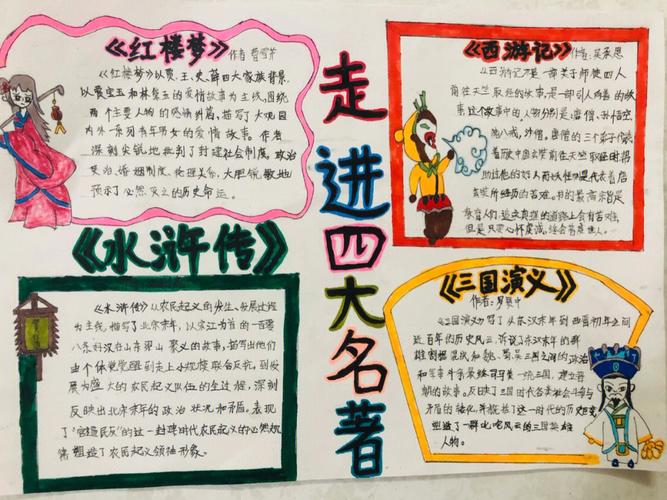 走进四大名著
《红楼梦》 作者 曹雪芹
《红楼梦》以贾、王、史、薛四大家族背景
以贾宝玉和林黛玉的爱情故事为主线，围绕
两个主要人物的感情纠葛，描写了大观园
内外一系列青年男女的爱情故事。作者
深刻尖锐地批判了封建社会制度，政治
统治，婚姻制度，伦理关系，大胆
预示了必然灭亡的历史命运。
《西游记》 作者：吴承恩
《西游记》是一部关于师徒四人
前往天竺取经的故事，是一部引人向善的故
事这个故事中的人物分别是：唐僧、孙悟空、
猪八戒、沙僧，唐僧的三个弟子代
前往天竺取经
是代表着后
去
人们，追求真理的道路上会有苦难
但是只要心怀虔诚，
《水浒传》
《水浒传》以农民起义的发生、发展过程
为主线，描写了北宋末年，以宋江为首的一百零
八条好汉在山东梁山聚义的故事，描写出他们
由个体觉醒到走上小规模联合反抗，到发
展为盛大的农民起义队伍的全过程，深刻
反映出北宋末年的政治状况和矛盾。表现
了“官逼民反”的这一封建时代农民起义的必然规
塑造了农民起义领袖形象。
《三国演义》
作者：罗贯中
《三国演义》写了从东汉末年到西晋初年之间
近百年的历史风云，诉说了东汉末年的群
雄割据混战和魏、蜀、吴三国之间的政治
和军事斗争最终司马炎一统三国，建立晋
朝的故事。反映了三国时代各类社会斗争与
矛盾的转化，并概括了这一时代的历史巨变
塑造了一群叱咤风云的三国英雄
人物。